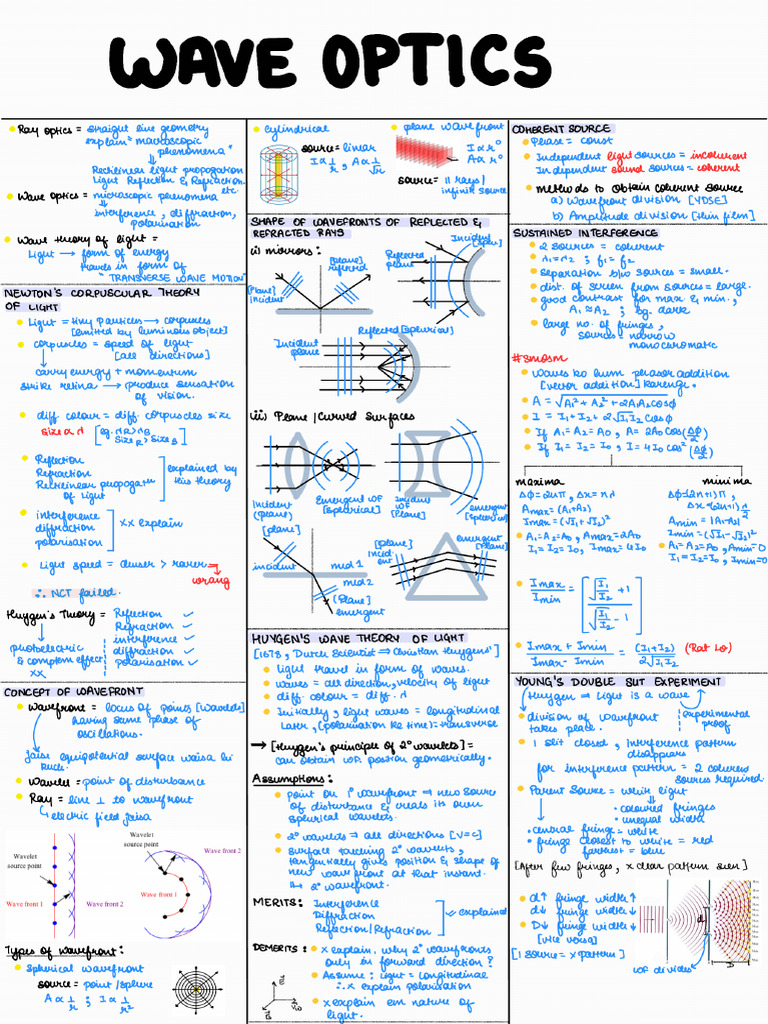 WAVE OPTICS
Ray optics = straight line geometry
explain "macroscopic
phenomena"
Rectilinear light propagation
Light Reflection & Refraction.
etc.
Wave optics = microscopic phenomena
interference, diffraction,
polarisation
Wave theory of light =
Light → form of energy
travels in form of
"TRANSVERSE WAVE MOTION"
NEWTON'S CORPUSCULAR THEORY
OF LIGHT
Light = tiny particles → corpuscles
[emitted by luminous object]
corpuscles = speed of light
[all directions]
carry energy + momentum
strike retina → produce sensation
of vision.
diff colour = diff. corpuscles size
size α λ
Reflection
Refraction
of light
explained by
this theory
interference
diffraction
polarisation
xx explain
Light speed = denser > rarer
wrong
∴ NCT failed.
Huygen's Theory = Reflection ✓
Refraction ✓
interference ✓
diffraction ✓
polarisation ✓
photoelectric
& compton effect
xx
CONCEPT OF WAVEFRONT
Wavefront = locus of points [wavelets]
having same phase of
oscillations.
jaise equipotential surface waisa hi
Wavelet = point of disturbance
Ray = line ⊥ to wavefront
electric field jaisa
Wavelet
source point
Wave front 1
Wave front 2
Wavelet
source point
Wave front 2
Wave front 1
Types of wavefront:
Spherical wavefront
source = point/sphere
A α 1/r ; I α 1/r²
cylindrical
source = linear
I α 1/r , A α 1/√r
plane wavefront
I α r⁰
A α r⁰
source = || rays/
infinite source
SHAPE OF WAVEFRONTS OF REFLECTED &
REFRACTED RAYS
(i) mirrors:
[plane]
incident
[plane]
reflected
Reflected
plane
Incident
Incident
plane
Reflected [spherical]
(ii) Plane/Curved Surfaces
incident
(plane)
Emergent WF
[spherical]
incident
WF
[plane]
emergent
[spherical]
[plane]
incident
med 1
med 2
[plane]
emergent
[plane]
incid
ent
emergent
[plane]
HUYGEN'S WAVE THEORY OF LIGHT
[1678, Dutch Scientist ⇒ Christian Huygens']
light travel in form of waves.
waves = all direction, velocity of light
diff. colour = diff. λ
Initially, light waves = longitudinal
Later, (polarisation ke time) = transverse
→ [Huygen's principle of 2° wavelets] =
can obtain WF. position geometrically.
Assumptions:
point on 1° wavefront ⇒ new source
of disturbance & creats its own
spherical wavelets.
2° wavelets ⇒ all directions [v=c]
surface touching 2° wavelets,
tangentially gives position & shape of
new wavefront at that instant.
↳ 2° wavefront.
MERITS: Interference
Diffraction
Reflection/Refraction
explained
DEMERITS: x explain, why 2° wavefronts
only in forward direction?
Assume: light = longitudinal
∴ x explain polarisation
x explain em nature of
light.
COHERENT SOURCE
Phase = const
Independent light sources = incoherent
Independent sound sources = coherent
methods to obtain coherent source
a) Wavefront division [YDSE]
b) Amplitude division [thin film]
SUSTAINED INTERFERENCE
2 sources = coherent
λ1=λ2 ; f1=f2
separation b/w sources = small.
dist. of screen from sources = large.
good contrast for max & min.,
A1≈A2 ; bg. dark
large no. of fringes,
sources = narrow
monocromatic
waves ko hum phasor addition
[vector addition] karenge.
A = √A1²+A2²+2A1A2cosϕ
I = I1+I2+2√I1I2 cosϕ
If A1=A2=A0, A=2A0 cos(Δϕ/2)
If I1=I2=I0, I=4I0 cos²(Δϕ/2)
maxima
Δϕ=2nπ, Δx=nλ
Amax=(A1+A2)
Imax=(√I1+√I2)²
A1=A2=A0, Amax=2A0
I1=I2=I0, Imax=4I0
minima
Δϕ=(2n+1)π,
Δx=(2n+1)λ/2
Amin=|A1-A2|
Imin=(√I1-√I2)²
A1=A2=A0, Amin=0
I1=I2=I0, Imin=0
Imax + Imin / Imax - Imin = (I1+I2) / 2√I1I2 (Rat lo)
YOUNG'S DOUBLE SLIT EXPERIMENT
Huygen ⇒ Light is a wave
division of wavefront
takes place.
experimental
proof
1 slit closed, interference pattern
disappears
for interference pattern = 2 coherent
sources required.
Parent Source = white light
coloured fringes
unequal width
central fringe = white
fringe closest to white = red
farthest = blue
[After few fringes, x clear pattern seen]
d↑ fringe width ↑
d↓ fringe width ↓
D↓ fringe width ↓
[vice versa]
[1 source = x pattern]
d
D
WF divides